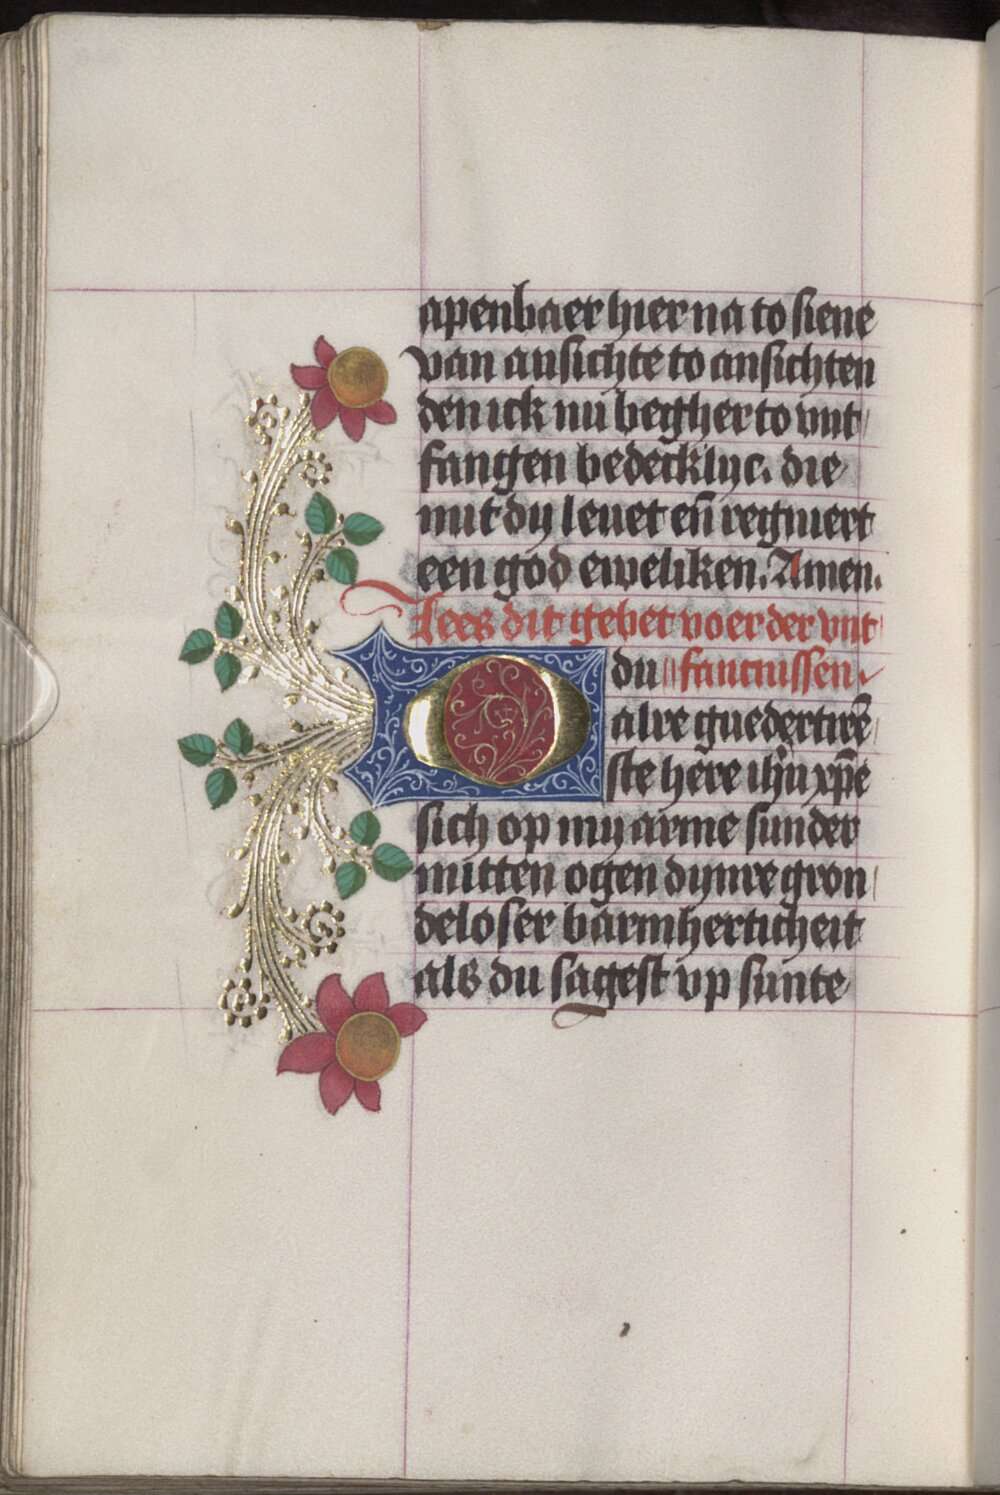 apenbaer hier na to siene
van ansichte to ansichten
den ick nu begher to unt
fangen bedecklyc. die
mit dy leuet eñ regniert
een god eweliken. Amen.
Lees dit gebet voer der unt
du fancnissen
O alre guedertirē
ste here ihū xpē
sich op my arme sunder
mitten ogen dynre gron
deloser barmherticheit
als du sagest up sunte